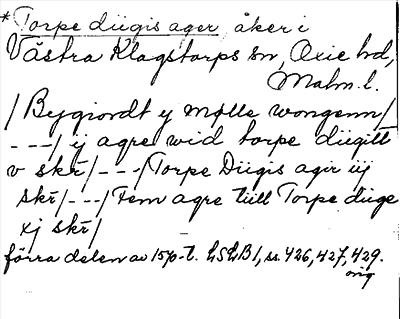 *Torpe diigis ager åker i
Västra Klagstorps sn, Oxie hd,
Malm. l.
/Bygiordt y mølle wongenn/
---/ ij agre wid torpe diigitt
v skr̄/---/Torpe Diigis agir iij
skr̄/---/Fem agre tiill Torpe diige
xj skr̄/
förra delen av 1570-t. LSLB1, ss. 426, 427, 429.
orig